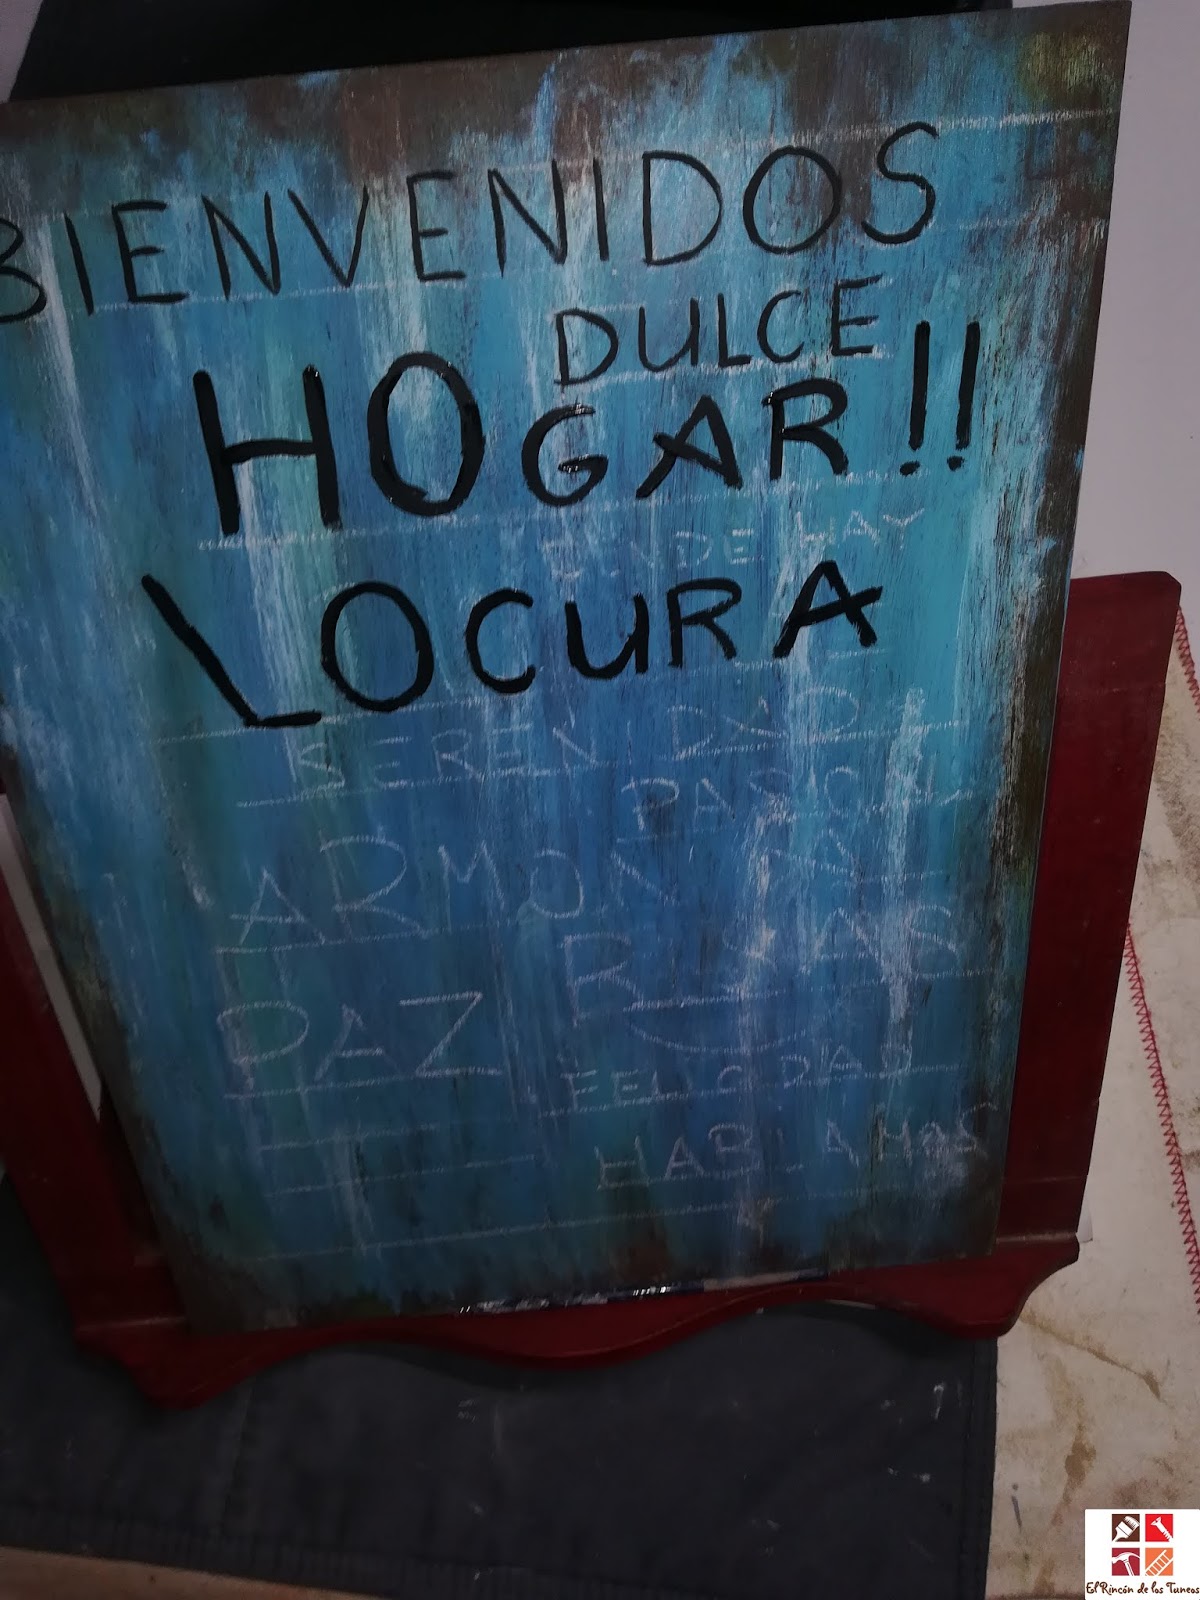 BIENVENIDOS
DULCE
HOGAR!!
DONDE HAY
LOCURA
SERENIDAD
ARMONIA
RISAS
PAZ
FELICIDAD
HABLAMOS
El Rincón de los Tuneos